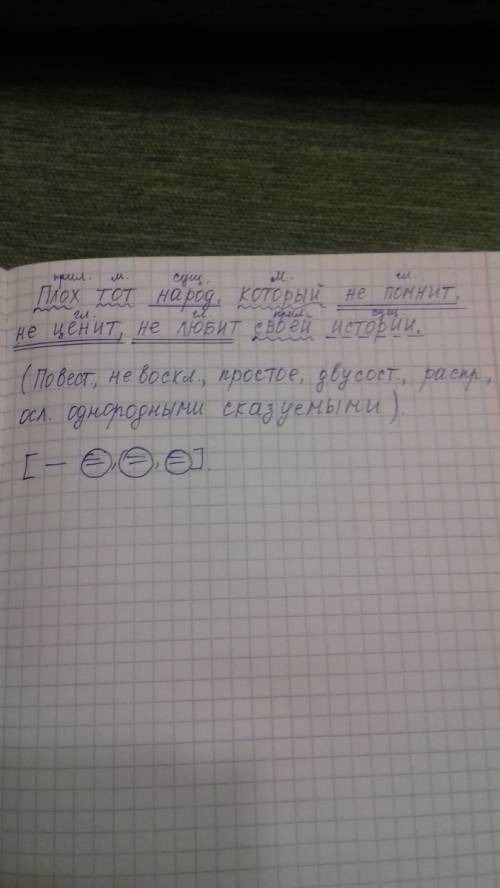 прил. м. сущ. м. гл.
Плох тот народ, который не помнит,
гл. гл. прил. сущ
не ценит, не любит своей истории.
(Повест, невоскл., простое, двусост., распр.,
осл. однородными сказуемыми).
[— =, =, =].